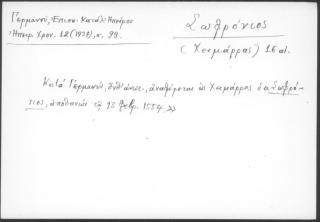 Γερμανού, Επισκ. Κατάλ. Ηπείρου
Ηπειρ. Χρον. 12 (1937), σ. 99.
Σωφρόνιος
(Χειμάρρας) 16 αι.
Κατά Γερμανόν, ένθ' ανωτ., αναφέρεται ως Χειμάρρας ο Σωφρό-
νιος, αποθανών τη 13 Φεβρ. 1554